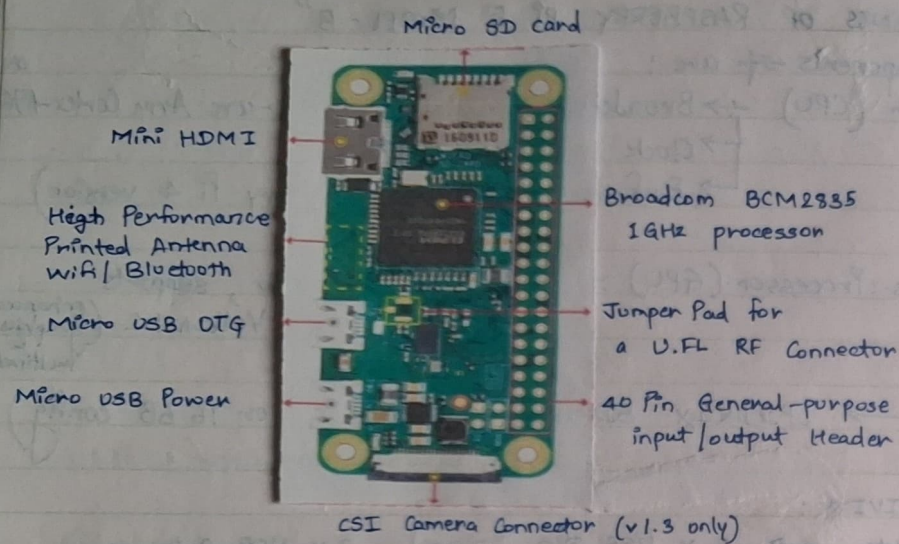 Micro SD Card
Mini HDMI
High Performance
Printed Antenna
Wifi/Bluetooth
Micro USB OTG
Micro USB Power
Broadcom BCM2835
1GHz processor
Jumper Pad for
a U.FL RF Connector
40 Pin General-purpose
input/output Header
CSI Camera Connector (v1.3 only)